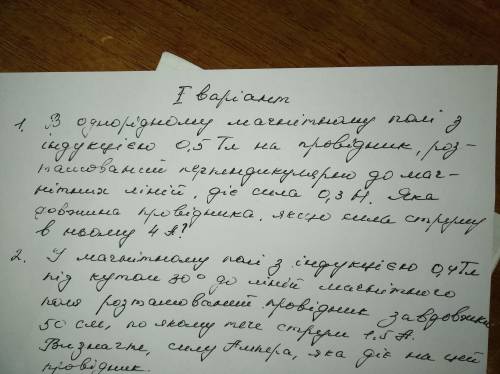 I варіант
1. В однорідному магнітному полі з
індукцією 0,5 Тл на провідник, роз-
ташований перпендикулярно до маг-
нітних ліній, діє сила 0,3 Н. Яка
довжина провідника, якщо сила струму
в ньому 4 А?
2. У магнітному полі з індукцією 0,4 Тл
під кутом 30° до ліній магнітного
поля розташований провідник завдовжки
50 см, по якому тече струм 1,5 А.
Визначте, силу Ампера, яка діє на цей
провідник.